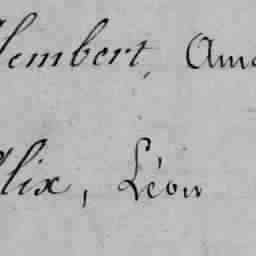 lembert, Ama
lix, Léon